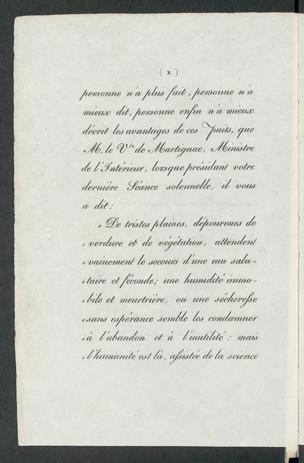 ( x )
personne n'a plus fait, personne n'a
mieux dit, personne enfin n'a mieux
décrit les avantages de ces Puits, que
M. le V.te de Martignac, Ministre
de l'Intérieur, lorsque présidant votre
dernière Séance solennelle, il vous
a dit :
« De tristes plaines, dépourvues de
« verdure et de végétation, attendent
« vainement le secours d'une eau salu-
« taire et féconde; une humidité immo-
« bile et meurtrière, ou une sécheresse
« sans espérance semble les condamner
« à l'abandon et à l'inutilité : mais
« l'humanité est là, assistée de la science